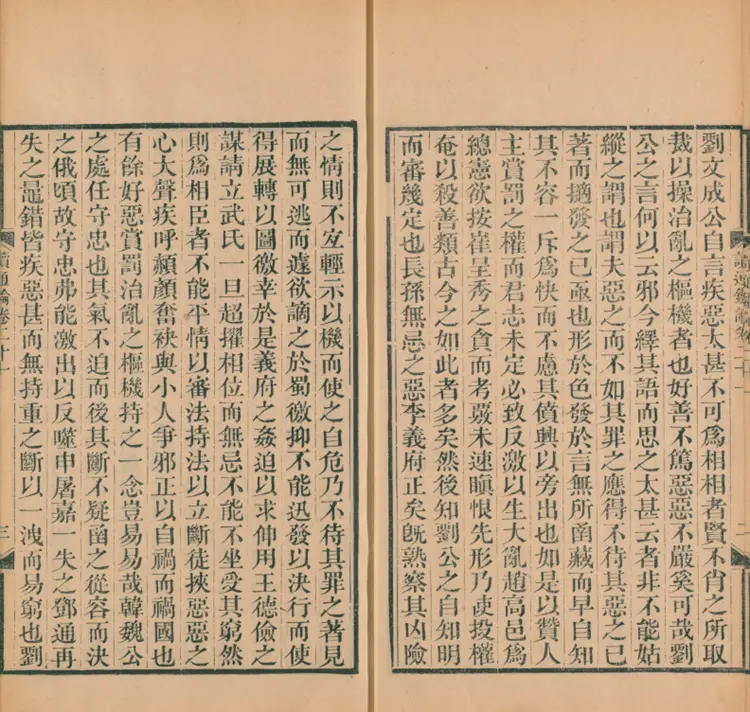 劉文成公自言疾惡太甚不可爲相相者賢不肖之所取
裁以操治亂之樞機者也好善不篤惡惡不嚴奚可哉劉
公之言何以云邪今繹其語而思之太甚云者非不能姑
縱之謂也謂夫惡之而不如其罪之應得不待其惡之已
著而擿發之已亟也形於色發於言無所函藏而早自知
其不容一斥爲快而不慮其僨興以旁出也如是以贊人
主賞罰之權而君志未定必致反激以生大亂趙高邑爲
總憲欲按崔呈秀之貪而考覈未速瞋恨先形乃使投權
奄以殺善類古今之如此者多矣然後知劉公之自知明
而審幾定也長孫無忌之惡李義府正矣旣熟察其凶險
之情則不宐輕示以機而使之自危乃不待其罪之著見
而無可逃而遽欲謫之於蜀徼抑不能迅發以決行而使
得展轉以圖徼幸於是義府之姦迫以求伸用王德儉之
謀請立武氏一旦超擢相位而無忌不能不坐受其窮然
則爲相臣者不能平情以審法持法以立斷徒挾惡惡之
心大聲疾呼頳顏奮袂與小人爭邪正以自禍而禍國也
有餘好惡賞罰治亂之樞機持之一念豈易易哉韓魏公
之處任守忠也其氣不迫而後其斷不疑函之從容而決
之俄頃故守忠弗能激出以反噬申屠嘉一失之鄧通再
失之鼂錯皆疾惡甚而無持重之斷以一洩而易窮也劉